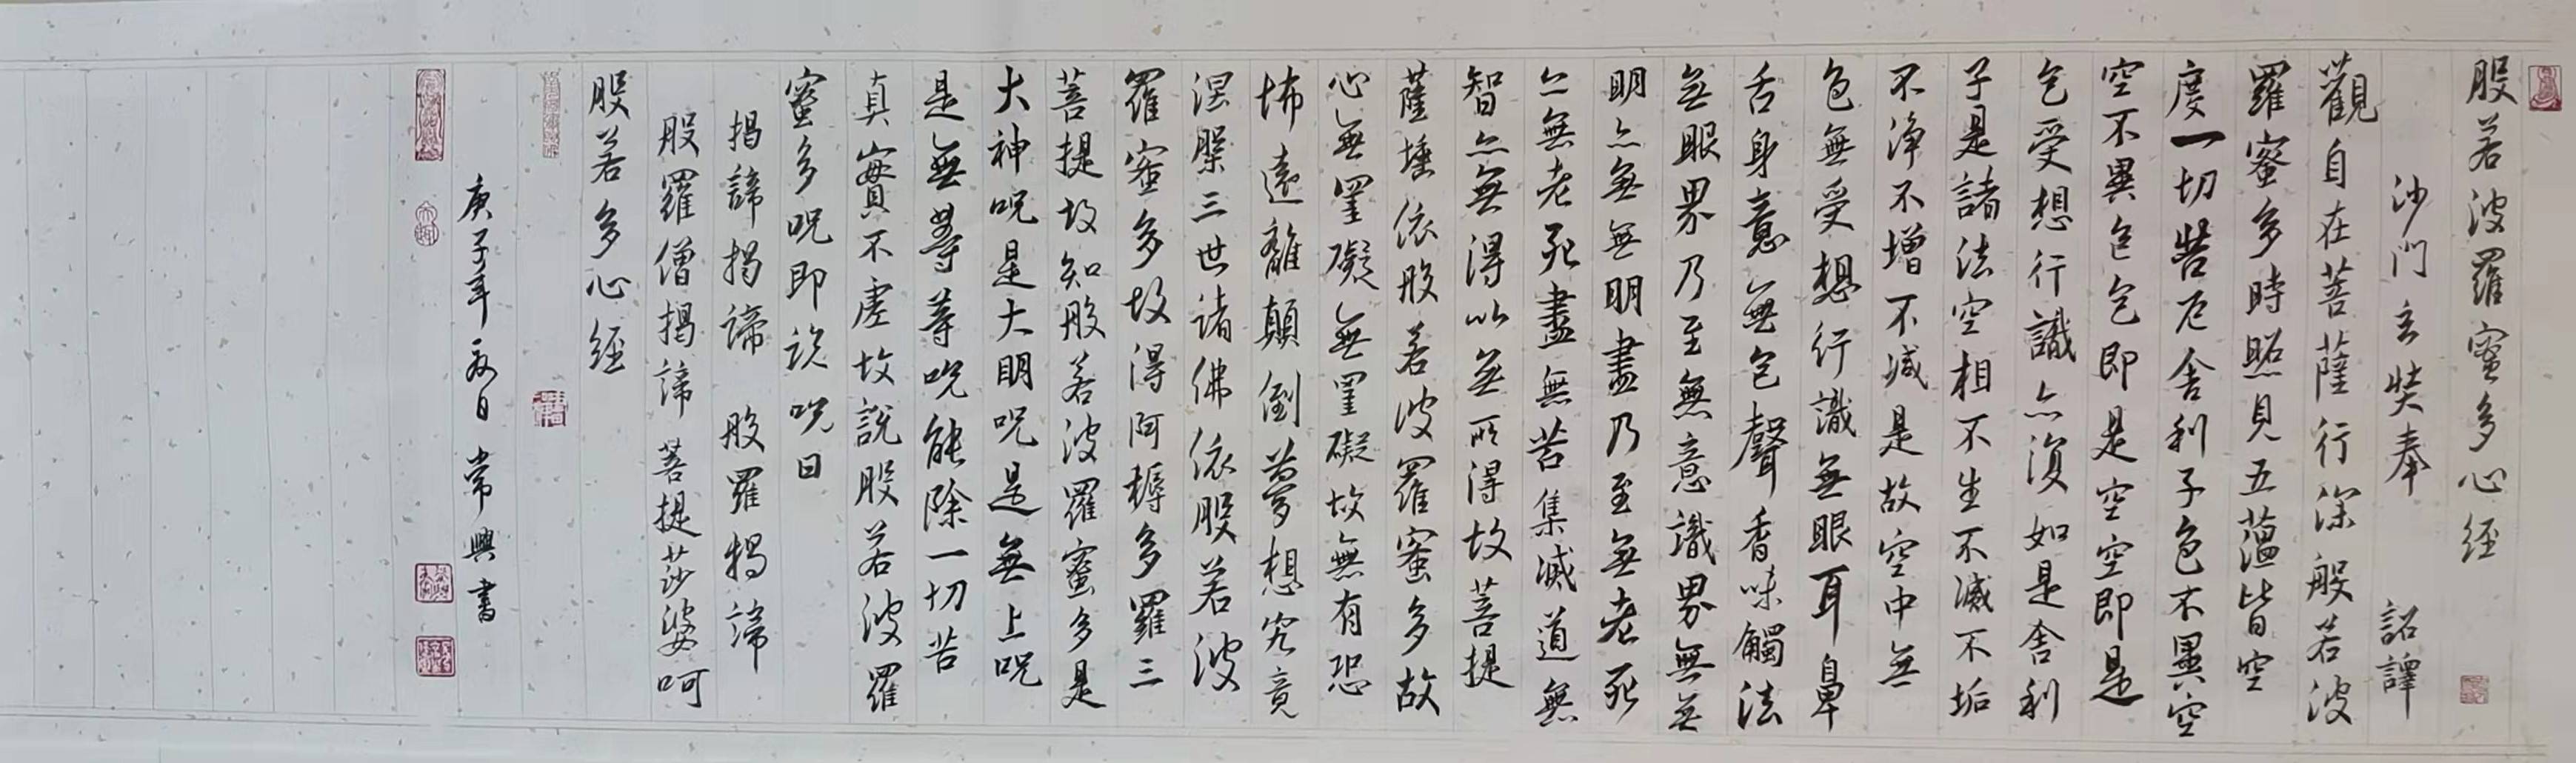 般若波羅蜜多心経
沙門玄奘奉 詔譯
觀自在菩薩行深般若波
羅蜜多時照見五蕴皆空
度一切苦厄舍利子色不異空
空不異色色即是空空即是
色受想行識亦復如是舍利
子是諸法空相不生不滅不垢
不净不增不減是故空中無
色無受想行識無眼耳鼻
舌身意無色聲香味觸法
無眼界乃至無意識界無無
明亦無無明盡乃至無老死
亦無老死盡無苦集滅道無
智亦無得以無所得故菩提
薩埵依般若波羅蜜多故
心無罣礙無罣礙故無有恐
怖遠離顛倒夢想究竟
涅槃三世諸佛依般若波
羅蜜多故得阿耨多羅三
菩提故知般若波羅蜜多是
大神呪是大明呪是無上呪
是無等等呪能除一切苦
真實不虛故說般若波羅
蜜多呪即說呪曰
揭諦揭諦 般羅揭諦
般羅僧揭諦 菩提莎婆呵
般若多心経
庚子年 夏日 常興書